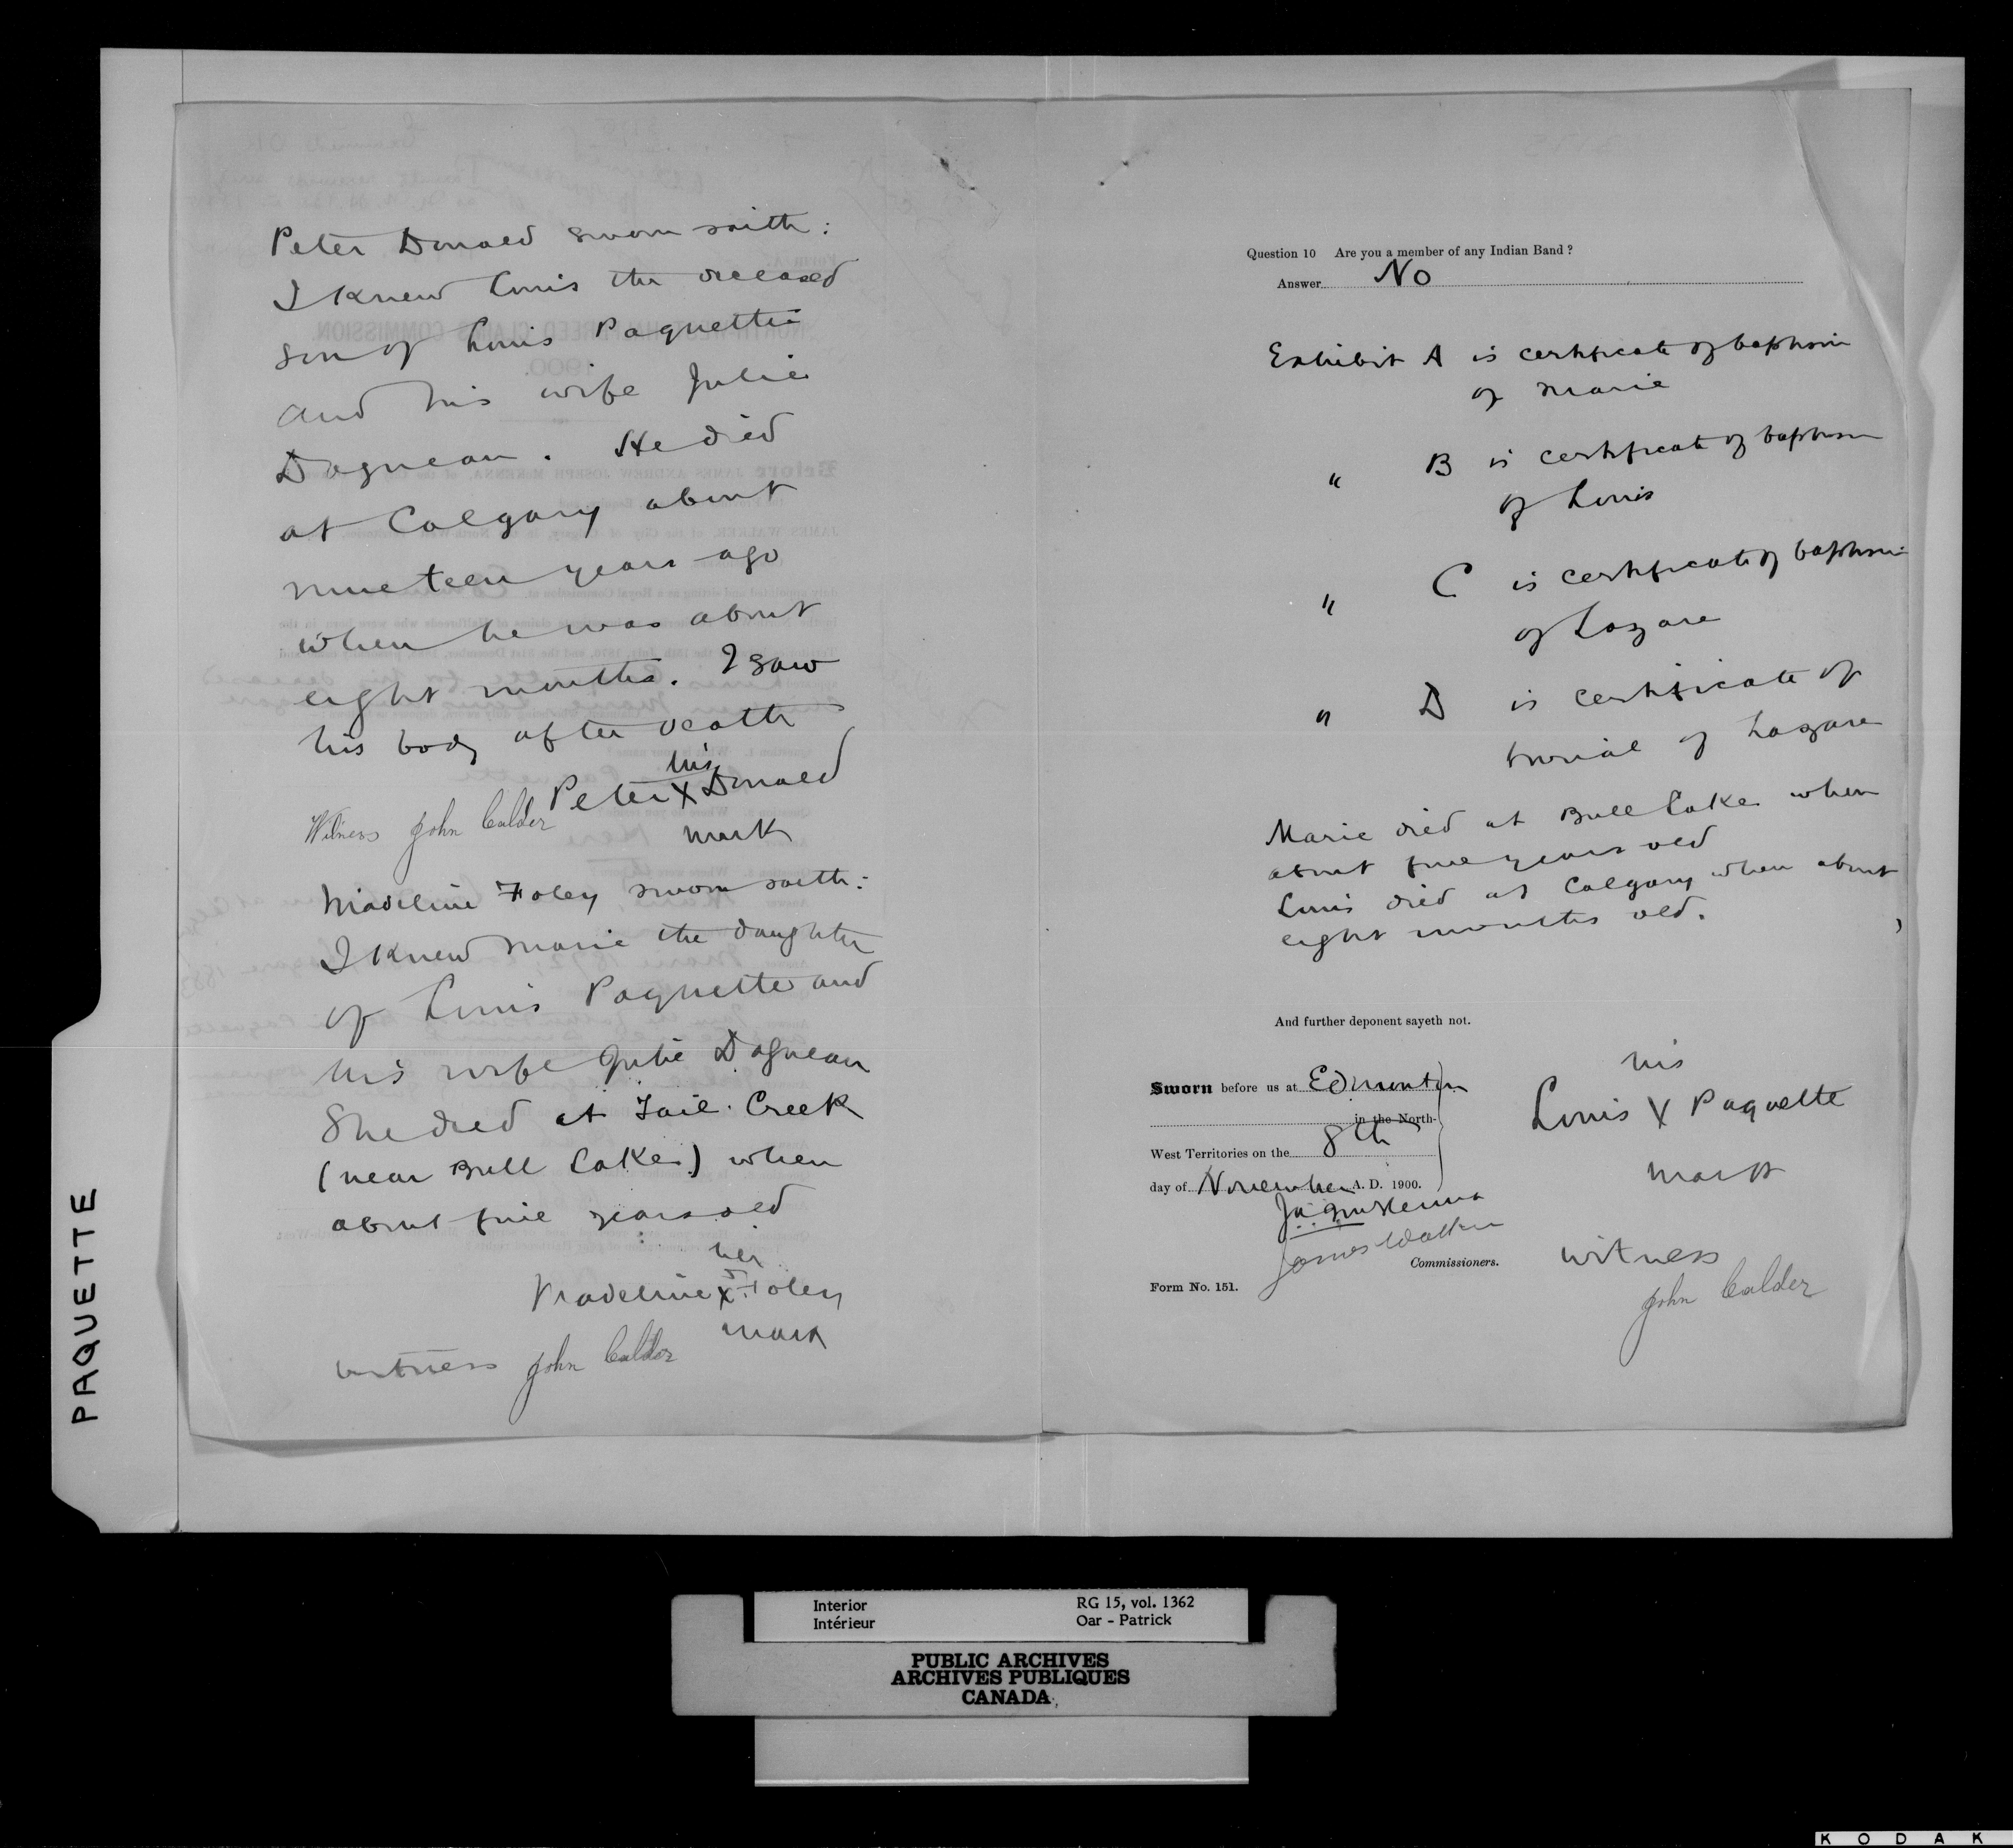 Peter Donald sworn saith:
I knew Louis the deceased
son of Louis Paquette
and his wife Julie
Dagneau. He died
at Calgary about
nineteen years ago
when he was about
eight months. I saw
his body after death
his
Peter X Donald
mark
Witness John Calder
Madeline Foley sworn saith:
I knew Marie the daughter
of Louis Paquette and
his wife Julie Dagneau
She died at Tail Creek
(near Bull Lake) when
about five years old
her
Madeline X Foley
mark
witness John Calder
Question 10 Are you a member of any Indian Band ?
Answer No
Exhibit A is certificate of baptism
of Marie
" B is certificate of baptism
of Louis
" C is certificate of baptism
of Lazare
" D is certificate of
burial of Lazare
Marie died at Bull Lake when
about five years old
Louis died at Calgary when about
eight months old.
And further deponent sayeth not.
Sworn before us at Edmonton
in the North-
West Territories on the 8th
day of November A. D. 1900.
J.A.J. McKenna
James Walker
Commissioners.
Form No. 151.
his
Louis X Paquette
mark
witness
John Calder
PAQUETTE
Interior RG 15, vol. 1362
Intérieur Oar - Patrick
PUBLIC ARCHIVES
ARCHIVES PUBLIQUES
CANADA
KODAK